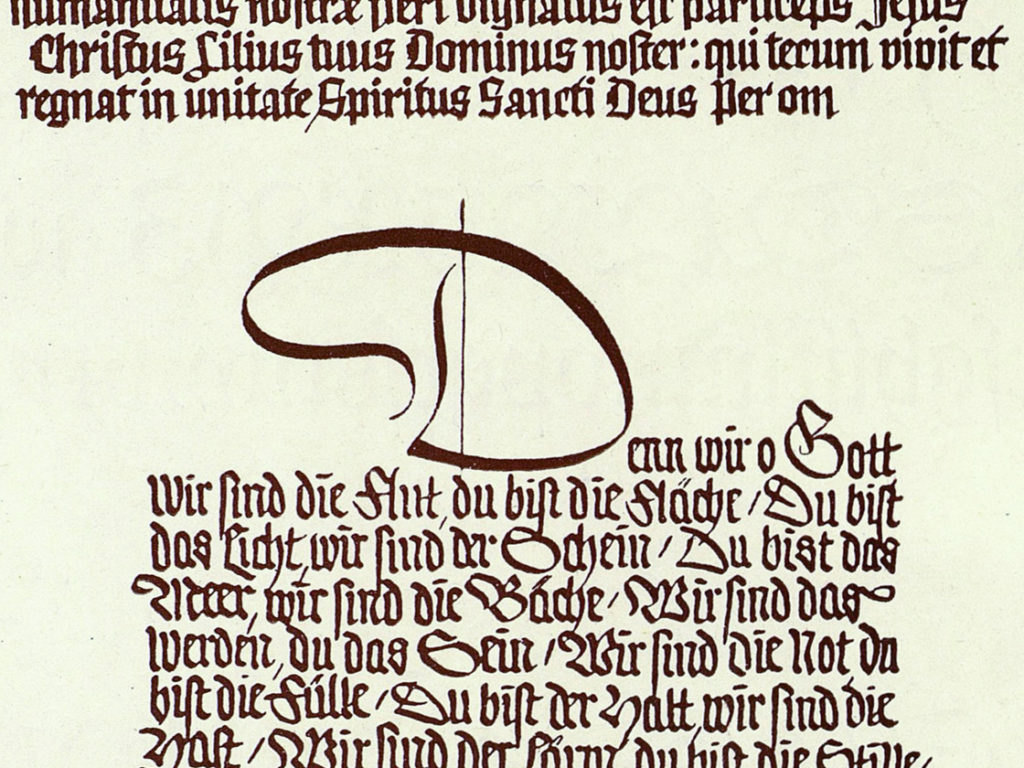 humanitatis nostræ fieri dignatus est particeps Jesus
Christus Filius tuus Dominus noster: qui tecum vivit et
regnat in unitate Spiritus Sancti Deus Per om
Denn wir o Gott
Wir sind die Flut, du bist die Fläche / Du bist
das Licht, wir sind der Schein / Du bist das
Meer, wir sind die Bäche / Wir sind das
Werden, du das Sein / Wir sind die Not, du
bist die Fülle / Du bist der Halt, wir sind die
Hast / Wir sind der Lärm, du bist die Stille /